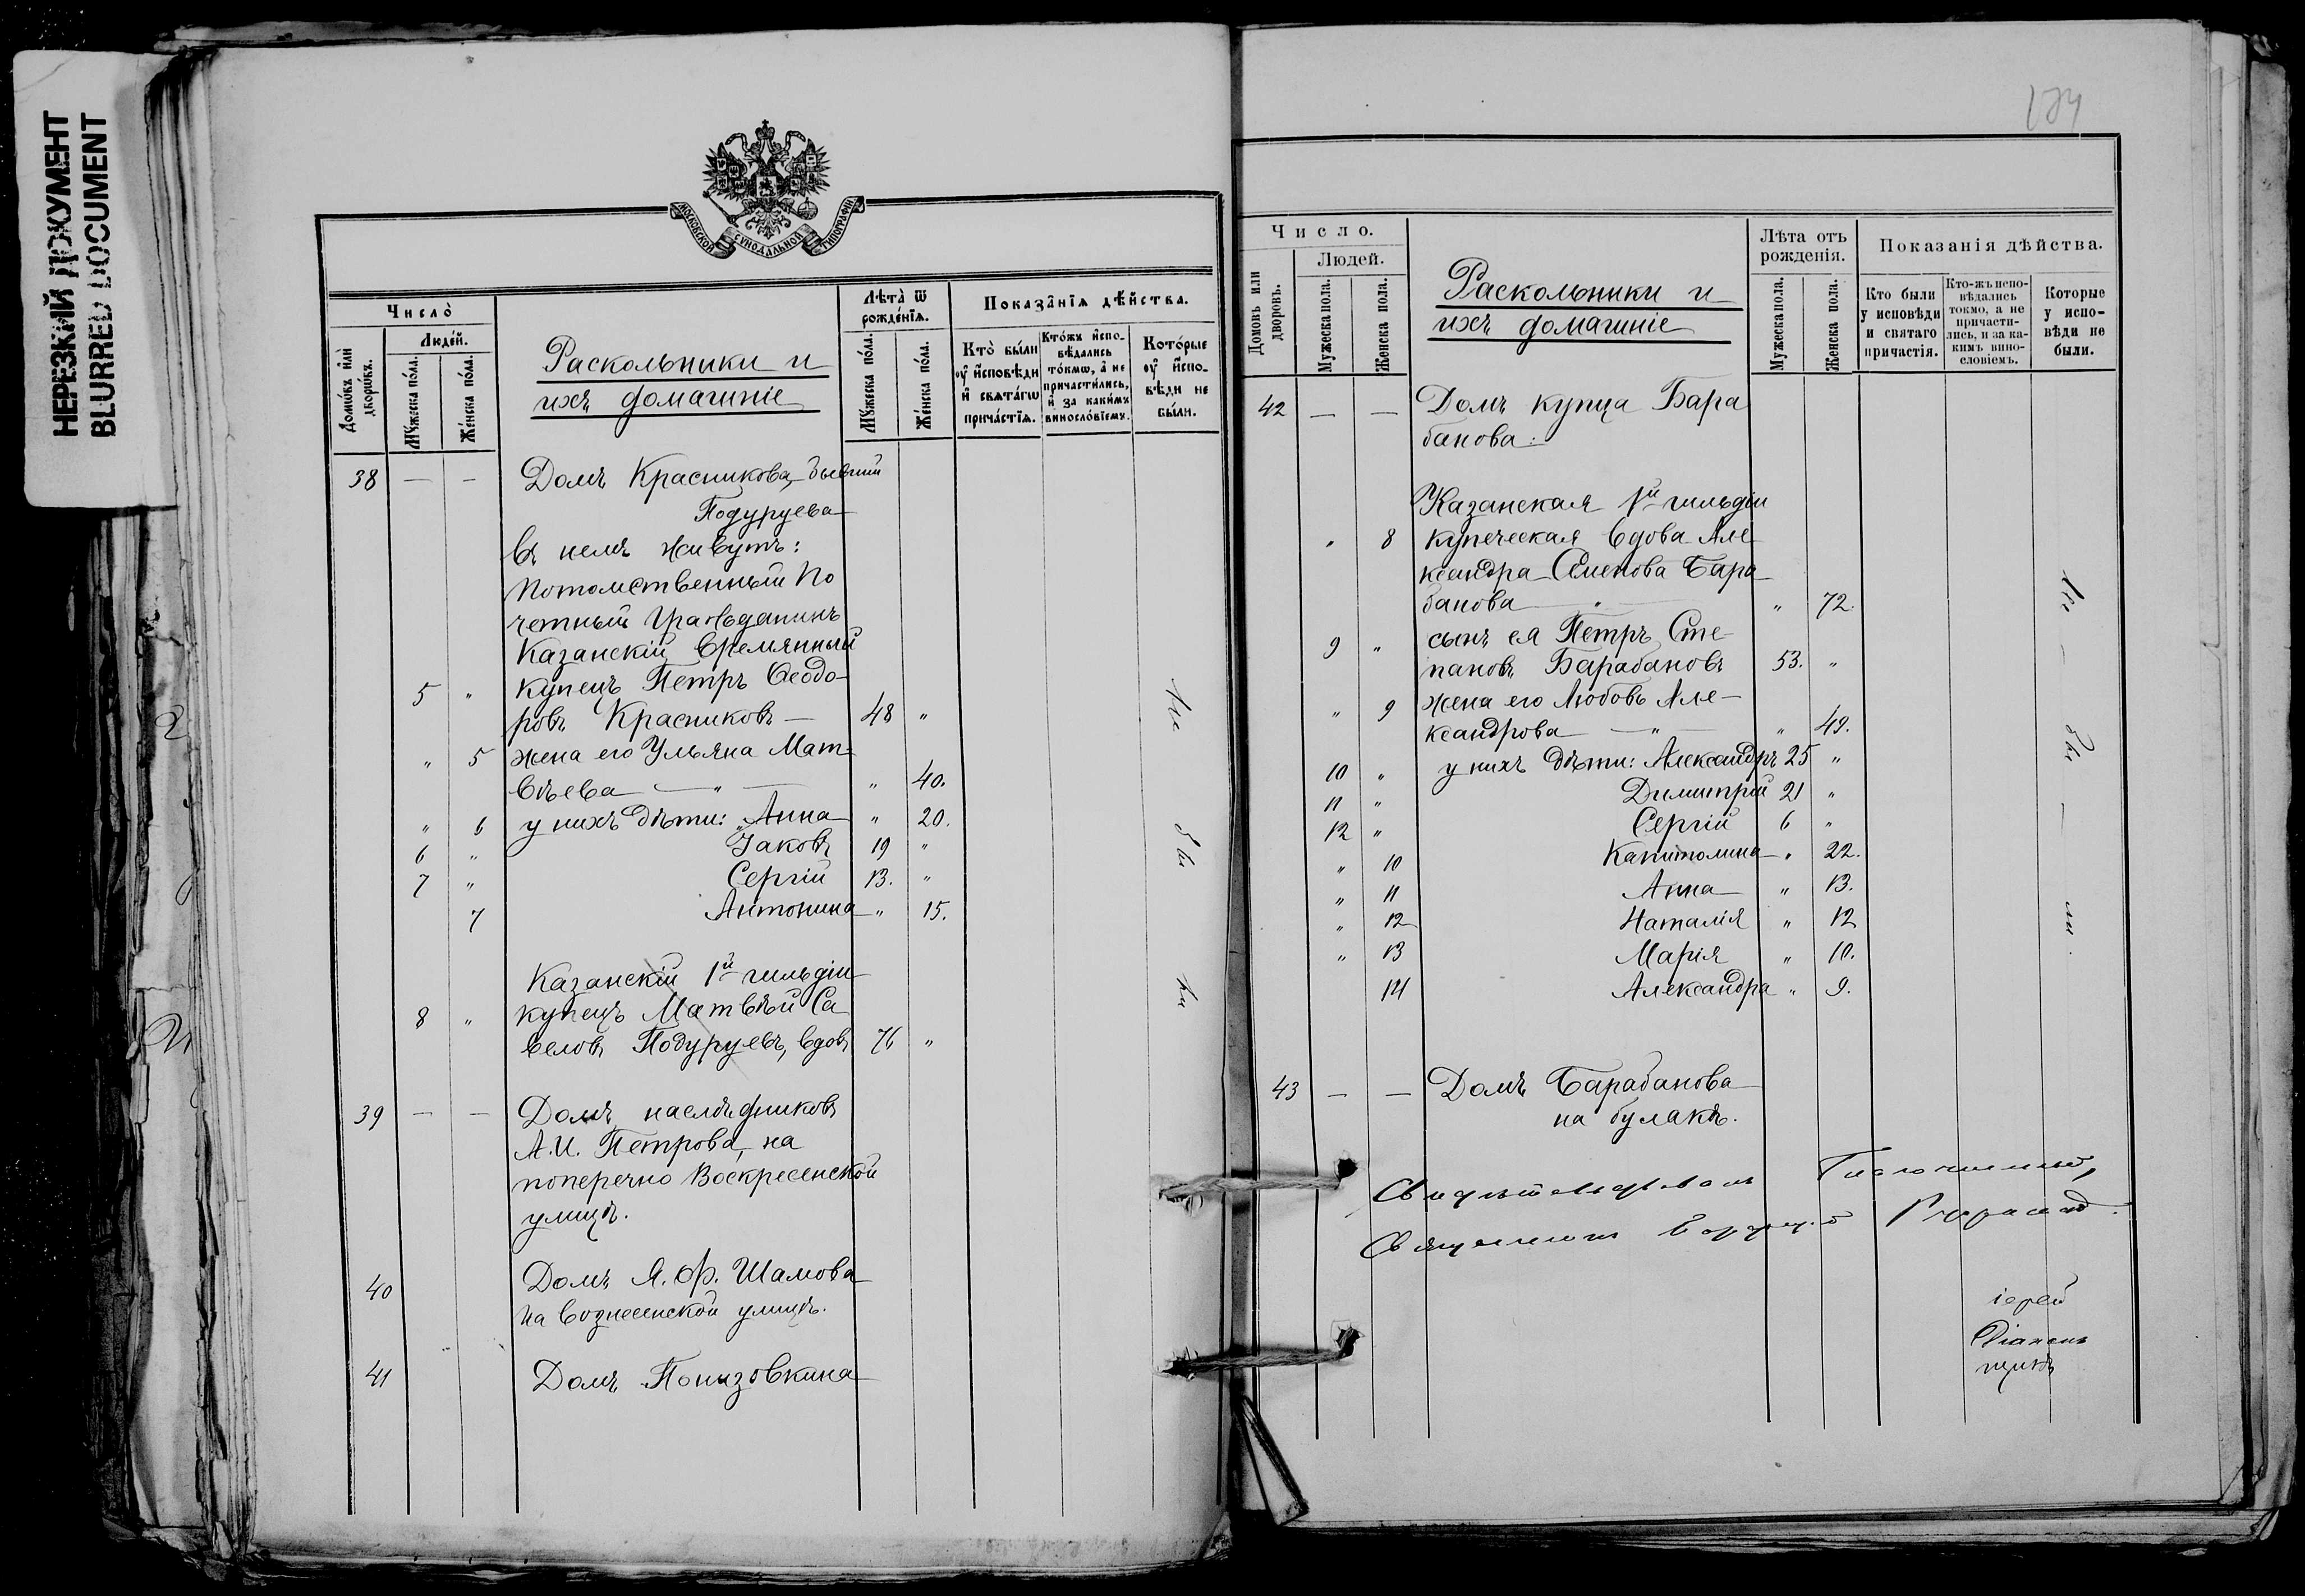 НЕРЕЗКИЙ ДОКУМЕНТ
BLURRED DOCUMENT
МОСКОВСКОЙ СѴНОДАЛЬНОЙ ТИПОГРАФІИ
Число̀
Людей.
Домѡ́въ и҆лѝ дворѡ́въ.
Мꙋ́жеска по́ла.
Же́нска по́ла.
Раскольники и
ихъ домашніе
Лѣта̀ ѿ рожде́нїѧ.
Мꙋ́жеска по́ла.
Же́нска по́ла.
Показа̑нїѧ дѣ́йства.
Кто̀ бы́ли
ᲂу҆ и҆сповѣди
и҆ свѧта́гѡ
прича́стїѧ.
Кто́жъ и҆спо-
вѣдались
то́кмѡ, а҆ не
причасти́лись,
и҆ за каки́мъ
винословїемъ.
Кото́рые
ᲂу҆ и҆спо-
вѣди не
бы́ли.
38 — — Домъ Красникова, бывший
Подуруева
въ немъ живутъ:
Потомственный По
четный Гражданинъ
Казанскій времянный
5 " Купецъ Петръ Ѳеодо-
ровъ Красниковъ — 48 "
" 5 жена его Ульяна Мат-
вѣева — " — " 40.
" 6 у нихъ дѣти: Анна " 20.
6 " Іаковъ 19 "
7 " Сергій 13. "
7 Антонина " 15.
Казанскій 1й гильдіи
8 " купецъ Матвѣй Са
веловъ Подуруевъ, вдовъ 76 "
39 — — Домъ наслѣдниковъ
А.И. Петрова, на
поперечно Воскресенской
улицѣ.
40 Домъ Я. Ф. Шамова
на Вознесенской улицѣ.
41 Домъ Понизовкина
Не бы ли
174
Число.
Людей.
Домовъ или дворовъ.
Мужеска пола.
Женска пола.
Раскольники и
ихъ домашніе
Лѣта отъ
рожденія.
Мужеска пола.
Женска пола.
Показанія дѣйства.
Кто были
у исповѣди
и святаго
причастія.
Кто-жъ испо-
вѣдались
токмо, а не
причасти-
лись, и за ка-
кимъ вино-
словіемъ.
Которые
у испо-
вѣди не
были.
42 — — Домъ купца Бара
банова:
Казанская 1й гильдіи
" 8 купеческая вдова Але
ксандра Семенова Бара
банова — " — " 72.
9 " сынъ ея Петръ Сте-
пановъ Барабановъ 53. "
" 9 жена его Любовь Але-
ксандрова — " — " 49.
10 " у нихъ дѣти: Александръ 25 "
11 " Димитрій 21 "
12 " Сергій 6 "
" 10 Капитолина " 22.
" 11 Анна " 13.
" 12 Наталія " 12
" 13 Марія " 10.
14 Александра " 9.
Не — бы — ли.
43 — — Домъ Барабанова
на булакѣ.
Свидѣтельствовалъ Благочинный,
Священникъ
іерей